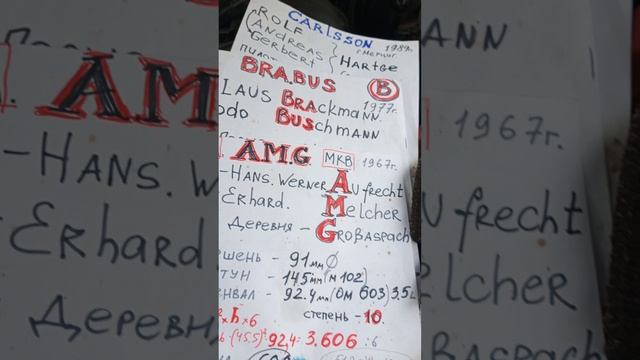 CARLSSON
ROLF
ANDREAS
Gerbert
1989г.
HARTGE
BRABUS B
1977г.
LAUS BRAckmANN.
odo BUSchmANN
AMG МКВ 1967г.
-HANS. WERNER AUfrecht
Erhard. Melcher
Деревня - Großaspach
ШЕНЬ - 91мм Ø
ТУН - 145мм (М 102)
НВАЛ - 92.4мм (ОМ 603) 3,5
степень -10.
(45.5)² 92,4 = 3.606 :6
AMG
-HANS
Erhard
Деревня
ANN
1967г.
Ufrecht
elcher